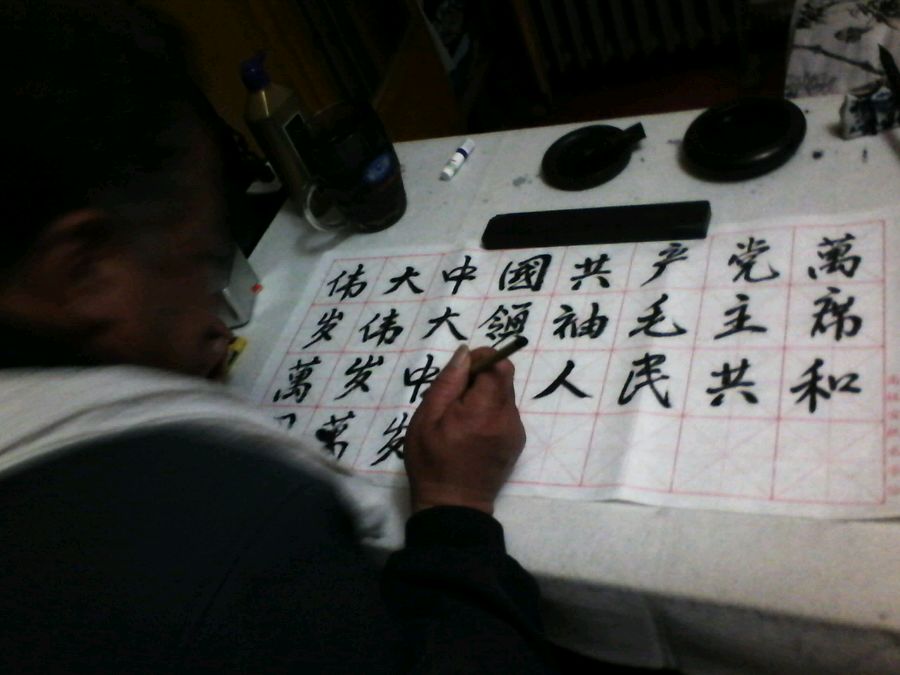 伟大中國共产党萬
岁伟大領袖毛主席
萬岁中人民共和
萬岁